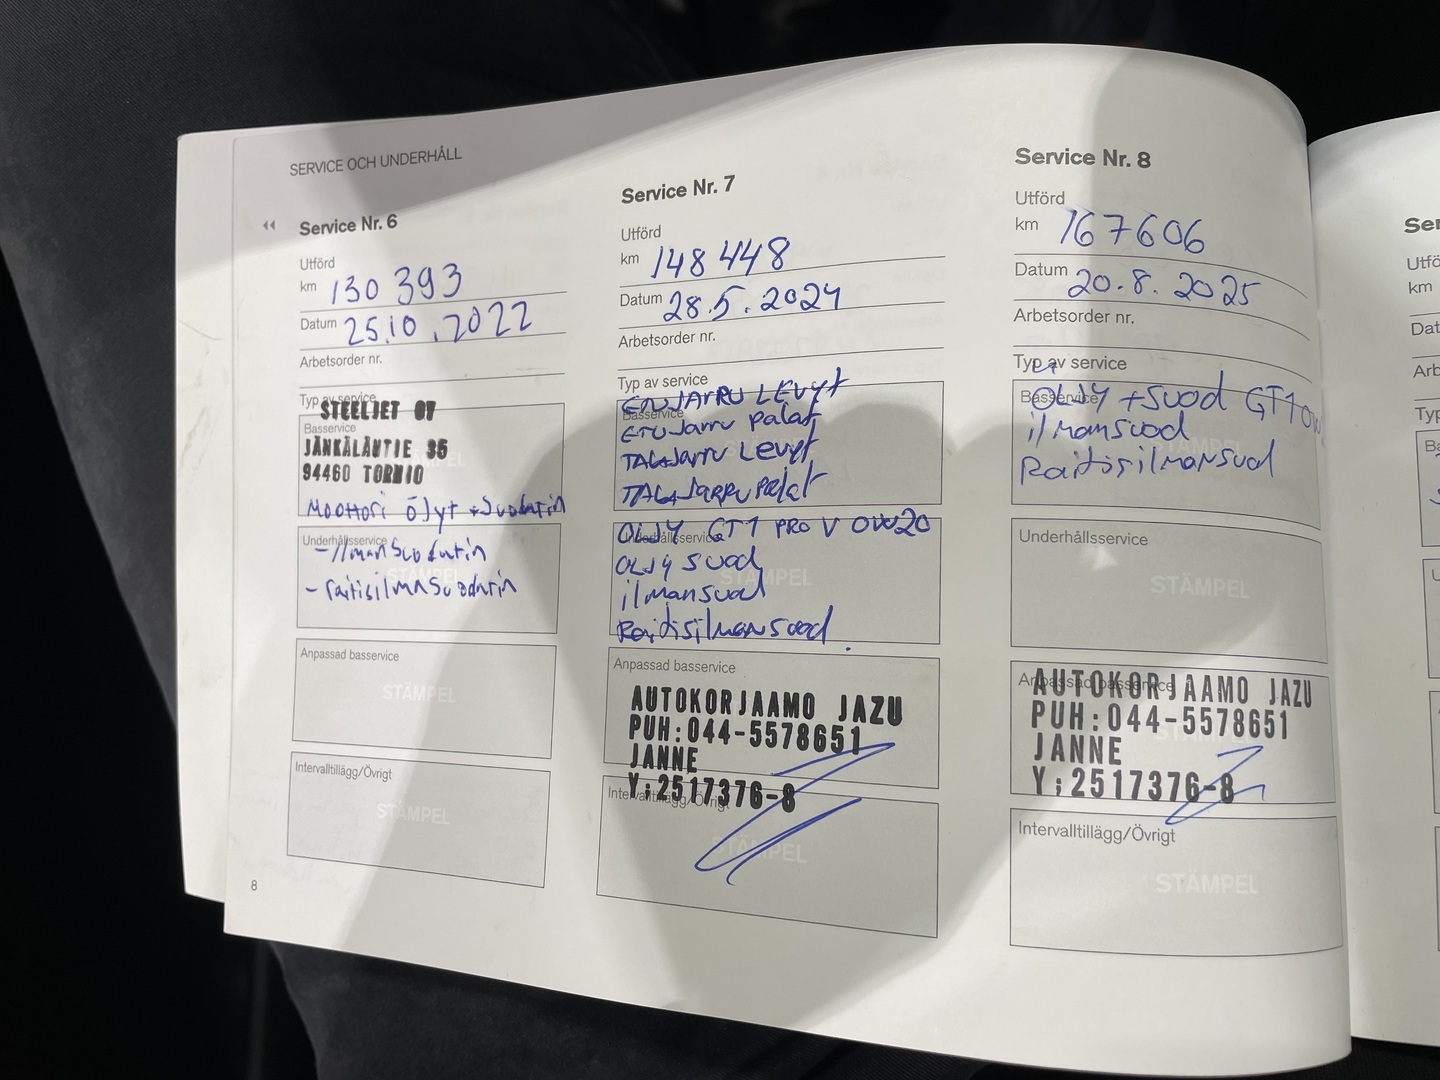 SERVICE OCH UNDERHÅLL
Service Nr. 6
Utförd
km 130 393
Datum 25.10.2022
Arbetsorder nr.
Typ av service
STEELJET OY
Basservice
JÄNKÄLÄNTIE 35
94460 TORNIO
Moottori öljyt + Suodatin
Underhållsservice
- ilmansuodatin
- raitisilmansuodatin
STÄMPEL
Anpassad basservice
STÄMPEL
Intervalltillägg/Övrigt
STÄMPEL
8
Service Nr. 7
Utförd
km 148 448
Datum 28.5.2024
Arbetsorder nr.
Typ av service
ETUJARRU LEVYT
Basservice
ETUJarru Palat
TAKAJarru LEVYT
TAKAJARRU Palat
OLJY GT1 PRO V 0W20
Underhållsservice
OLJY SUOD
STÄMPEL
ilmansuod
Raitisilmansuod.
Anpassad basservice
AUTOKORJAAMO JAZU
PUH:044-5578651
JANNE
Y;2517376-8
Intervalltillägg/Övrigt
STÄMPEL
Service Nr. 8
Utförd
km 167606
Datum 20.8.2025
Arbetsorder nr.
Typ av service
Basservice
ÖLJY +SUOD GT1 0W
ilmansuod
STÄMPEL
Raitisilmansuod
Underhållsservice
STÄMPEL
Anpassad basservice
AUTOKORJAAMO JAZU
PUH:044-5578651
JANNE
Y;2517376-8
Intervalltillägg/Övrigt
STÄMPEL
Ser
Utfö
km
Dat
Arb
Typ